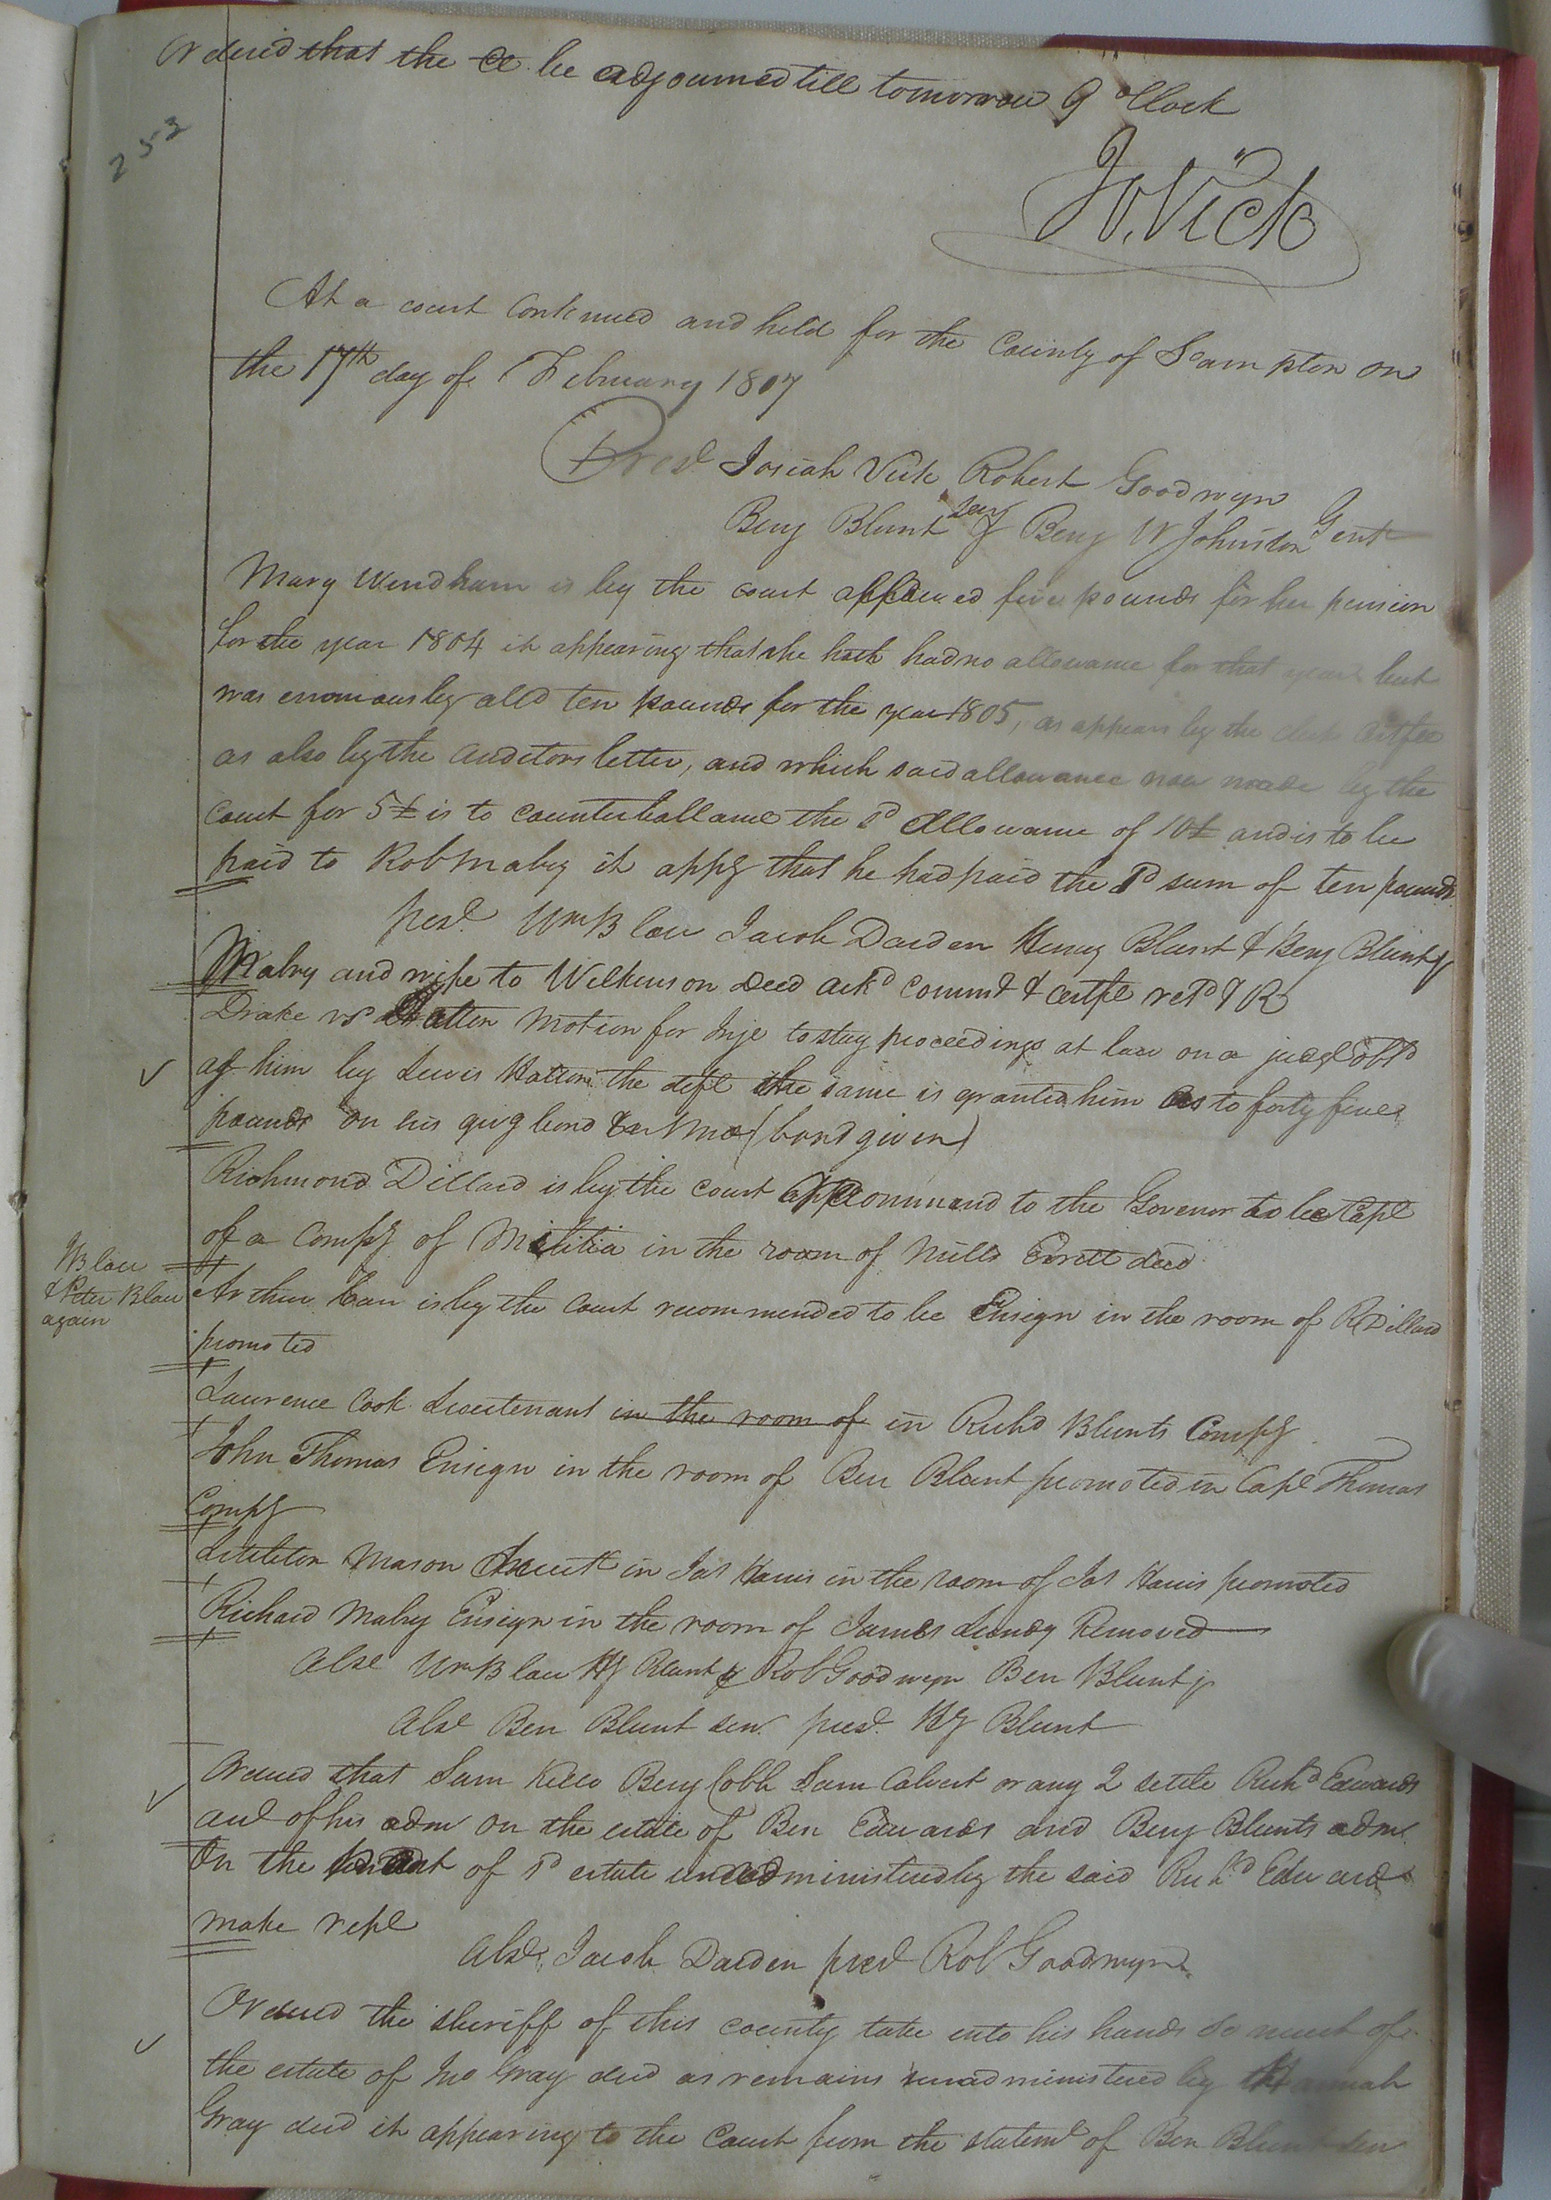 Ordered that the Ct be adjourned till tomorrow 9 oClock
253
Jo. Vick
At a court continued and held for the County of Soampton on
the 17th day of February 1807
Prest Josiah Vick Robert Goodwyn
Benj Blunt Sen & Benj W Johnston Gent
Mary Windham is by the court allowed five pounds for her pension
for the year 1804 it appearing that she hath had no allowance for that year but
was erroniously alld ten pounds for the year 1805, as appears by the clerks Certfce
as also by the auditors letter, and which said allowance now made by the
Court for 5£ is to counterballance the sd allowance of 10£ and is to be
paid to Rob Mabry it appg that he had paid the sd sum of ten pounds
prest Wm Blow Jacob Darden Henry Blunt & Benj Blunt jr
Mabry and wife to Wilkinson Deed ackd Commd & Certfe retd & OR
Drake vs Hatton motion for Inje to stay proceedings at law on a judgt obtd
agt him by Lewis Hatton the deft the same is granted him as to forty five
pounds on his givg bond (bond given)
Richmond Dillard is by the court recommend to the Govenor to be Capt
of a Compy of Militia in the room of Mills Everitt decd
W Blow
& Peter Blow
again
Arthur is by the Court recommended to be Ensign in the room of R Dillard
promoted
Laurence Cook Lieutenant in the room of in Richd Blunts Compy
John Thomas Ensign in the room of Ben Blunt promoted in Capt Thomas
Compy
Littleton Mason Lieut in Jas Harris in the room of Jas Harris promoted
Richard Mabry Ensign in the room of James Lundy Removed
Abst Wm Blow Hy Blunt & Rob Goodwyn Ben Blunt jr
Abst Ben Blunt sen. prest. Hy Blunt
Ordered that Sam Kello Benj Cobb Sam Calvert or any 2 settle Richd Edwards
acct of his adm on the estate of Ben Edwards and Benj Blunts adm.
On the of sd estate unadministered by the said Richd Edwards
make rept
Abst. Jacob Darden prest Rob Goodwyn
Ordered the sheriff of this county take into his hands so much of
the estate of Jno Gray decd as remains unadministered by Hannah
Gray decd it appearing to the Court from the statemt of Ben Blunt sen